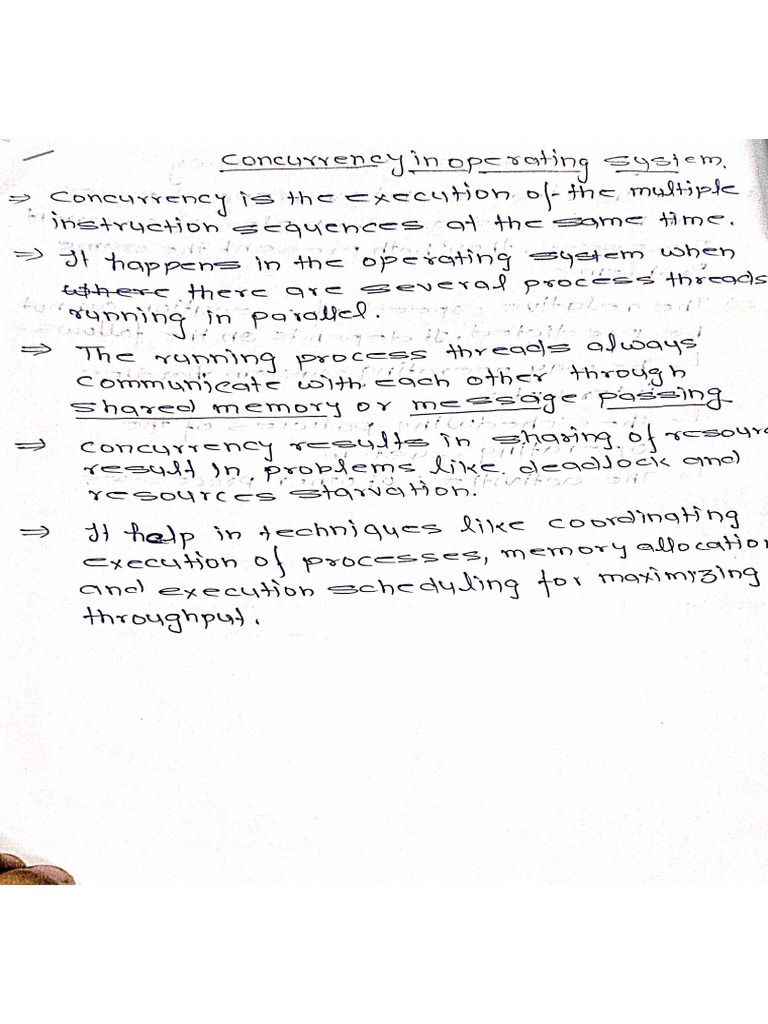 Concurrency in operating system.
⇒ Concurrency is the execution of the multiple
instruction sequences at the same time.
⇒ It happens in the operating system when
where there are several process threads
running in parallel.
⇒ The running process threads always
communicate with each other through
shared memory or message passing
⇒ Concurrency results in sharing of resourc
result In problems like deadlock and
resources starvation.
⇒ It help in techniques like coordinating
execution of processes, memory allocation
and execution scheduling for maximizing
throughput.